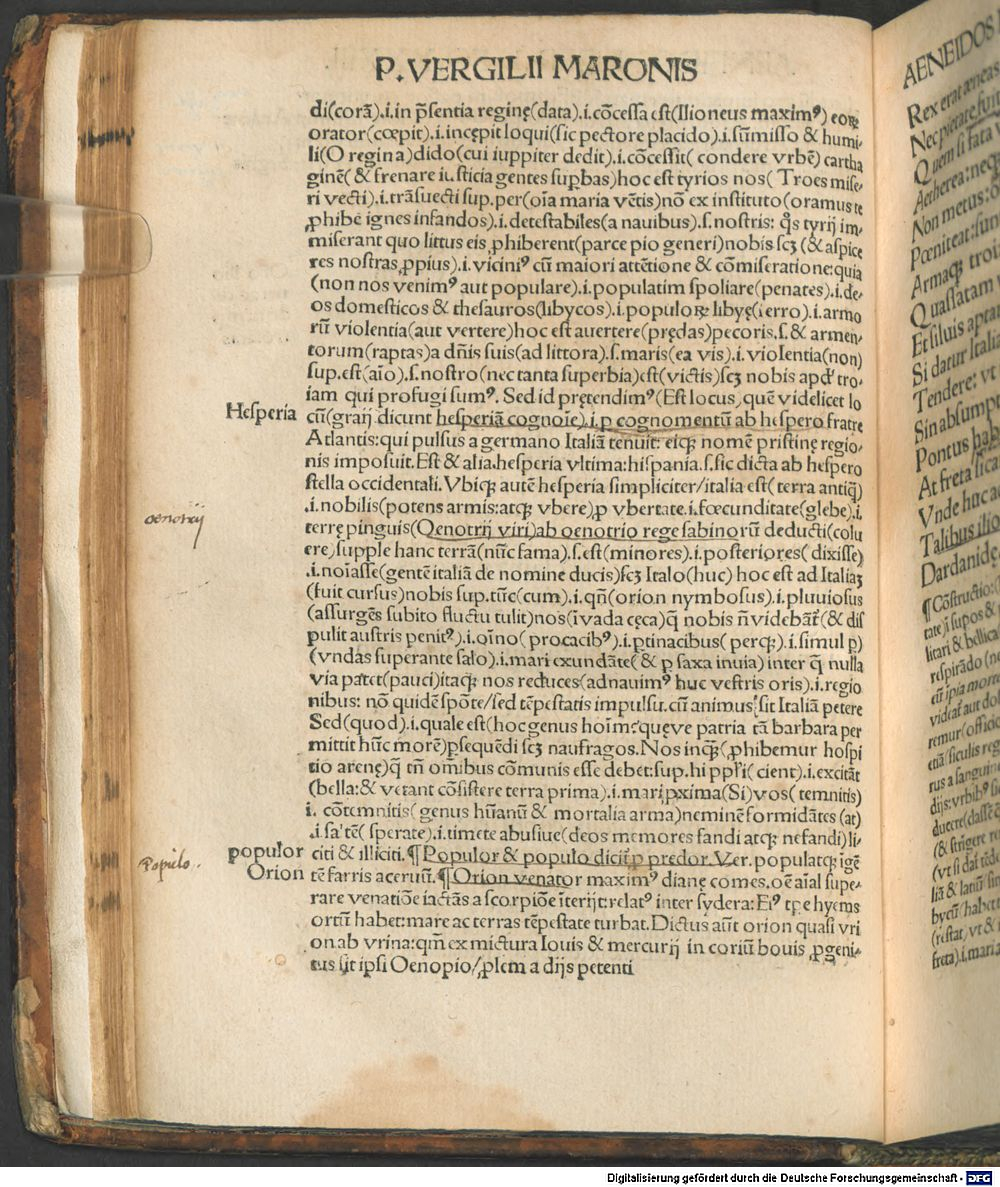 P.VERGILII MARONIS
di(corā).i.in p̄sentia reginę(data).i.cōcessa est(Ilioneus maximꝰ) eoꝝ
orator(cœpit).i.incępit loqui(sic pectore placido).i.sūmisso & humi-
li(O regina)dido(cui iuppiter dedit).i.cōcessit( condere vrbē) cartha
ginē( & frenare iusticia gentes suꝑbas)hoc est tyrios nos( Troes mise-
ri vecti).i.trāsuecti sup.per(oīa maria vētis)nō ex instituto(oramus te
ꝓhibe ignes infandos).i.detestabiles(a nauibus).s.nostris: q̄s tyrij im-
miserant quo littus eis ꝓhiberent(parce pio generi)nobis scꝫ (& aspice
res nostras ꝓpius).i.viciniꝰ cū maiori attētione & cōmiseratione:quia
(non nos venimꝰ aut populare).i.populatim spoliare(penates).i.de-
os domesticos & thesauros(libycos).i.populoꝝ libyę(ferro).i.armo
rū violentia(aut vertere)hoc est auertere(prędas)pecoris.s.& armen-
torum(raptas)a dn̄is suis(ad littora).s.maris(ea vis).i.violentia(non)
sup.est(aīo).s.nostro(nec tanta superbia)est(victis)scꝫ nobis apd' tro-
iam qui profugi sumꝰ. Sed id prętendimꝰ(Est locus,quē videlicet lo
Hesperia
cū(graij dicunt hesperiā cognoīe).i.p cognomentū ab hespero fratre
Atlantis:qui pulsus a germano Italiā tenuit: eiqꝫ nomē pristinę regio-
nis imposuit.Est & alia.hesperia vltima:hispania.s.sic dicta ab hespero
stella occidentali.Vbicūqꝫ autē hesperia simpliciter/italia est( terra antiq̄)
.i.nobilis(potens armis:atqꝫ vbere).ꝓ vbertate.i.fœcunditate(glebe).i.
terrę pinguis(Oenotrij viri)ab oenotrio rege sabinorū deducti(colu
oenotrij
ere)supple hanc terrā(nūc fama).s.est(minores).i.posteriores( dixisse)
.i.noīasse(gentē italiā de nomine ducis)scꝫ Italo(huc) hoc est ad Italiaꝫ
(fuit cursus)nobis sup.tūc(cum).i.qn̄(orion nymbosus).i.pluuiosus
(assurgēs subito fluctu tulit)nos(ī vada cęca)q̄ nobis n̄ videbāt(& dis
pulit austris penitꝰ).i.oīno( procacibꝰ).i.ꝑtinacibus( perqꝫ).i.simul p)
(vndas superante salo).i.mari exundāte(& p saxa inuia) inter q̄ nulla
via patet(pauci)itaqꝫ nos reduces(adnauimꝰ huc vestris oris).i.regio
nibus: nō quidē spōte/sed tēpestatis impulsu.cū animus sit Italiā petere
Sed(quod).i.quale est(hoc genus hoīm:quęve patria tā barbara per
mittit hūc morē)ꝑsequēdi scꝫ naufragos.Nos inqꝫ(ꝓhibemur hospi
tio arenę)q̄ tn̄ omībus cōmunis esse debet:sup.hi ppl'i( cient).i.excitāt
(bella:& vetant cōsistere terra prima).i.mari ꝓxima(Si)vos( temnitis)
i. cōtemnitis( genus hūanū & mortalia arma)neminē formidātes(at)
.i.saltē( sperate).i.timete abusiue(deos memores fandi atqꝫ nefandi)li-
populor
citi & illiciti.¶Populor & populo dicit̄ p predor.Ver.populatqꝫ igē
Populo.
Orion
tē farris aceruū.¶Orion venator maximꝰ dianę comes.oē aīal supe-
rare venatiōe iactās a scorpiōe īterijt:relatꝰ inter sydera:Eiꝰ tpe hyems
ortū habet:mare ac terras tēpestate turbat.Dictus aūt orion quasi vri
on ab vrina:qm̄ ex mictura Iouis & mercurij in coriū bouis ꝓgeni-
tus sit ipsi Oenopio/ꝓlem a dijs petenti
AENEIDOS
Rex erat æneas
Nec pietate fuit
Quem si fata
Aetherea:neq
Non metus:
Pœniteat:sunt
Armaqꝫ troia
Quassatam
Et siluis aptar
Si datur Italia
Tendere: vt
Sin absumpt
Pontus hab
At freta sican
Vnde huc ad
Talibus ilio
Dardanidę
Digitalisierung gefördert durch die Deutsche Forschungsgemeinschaft - DFG